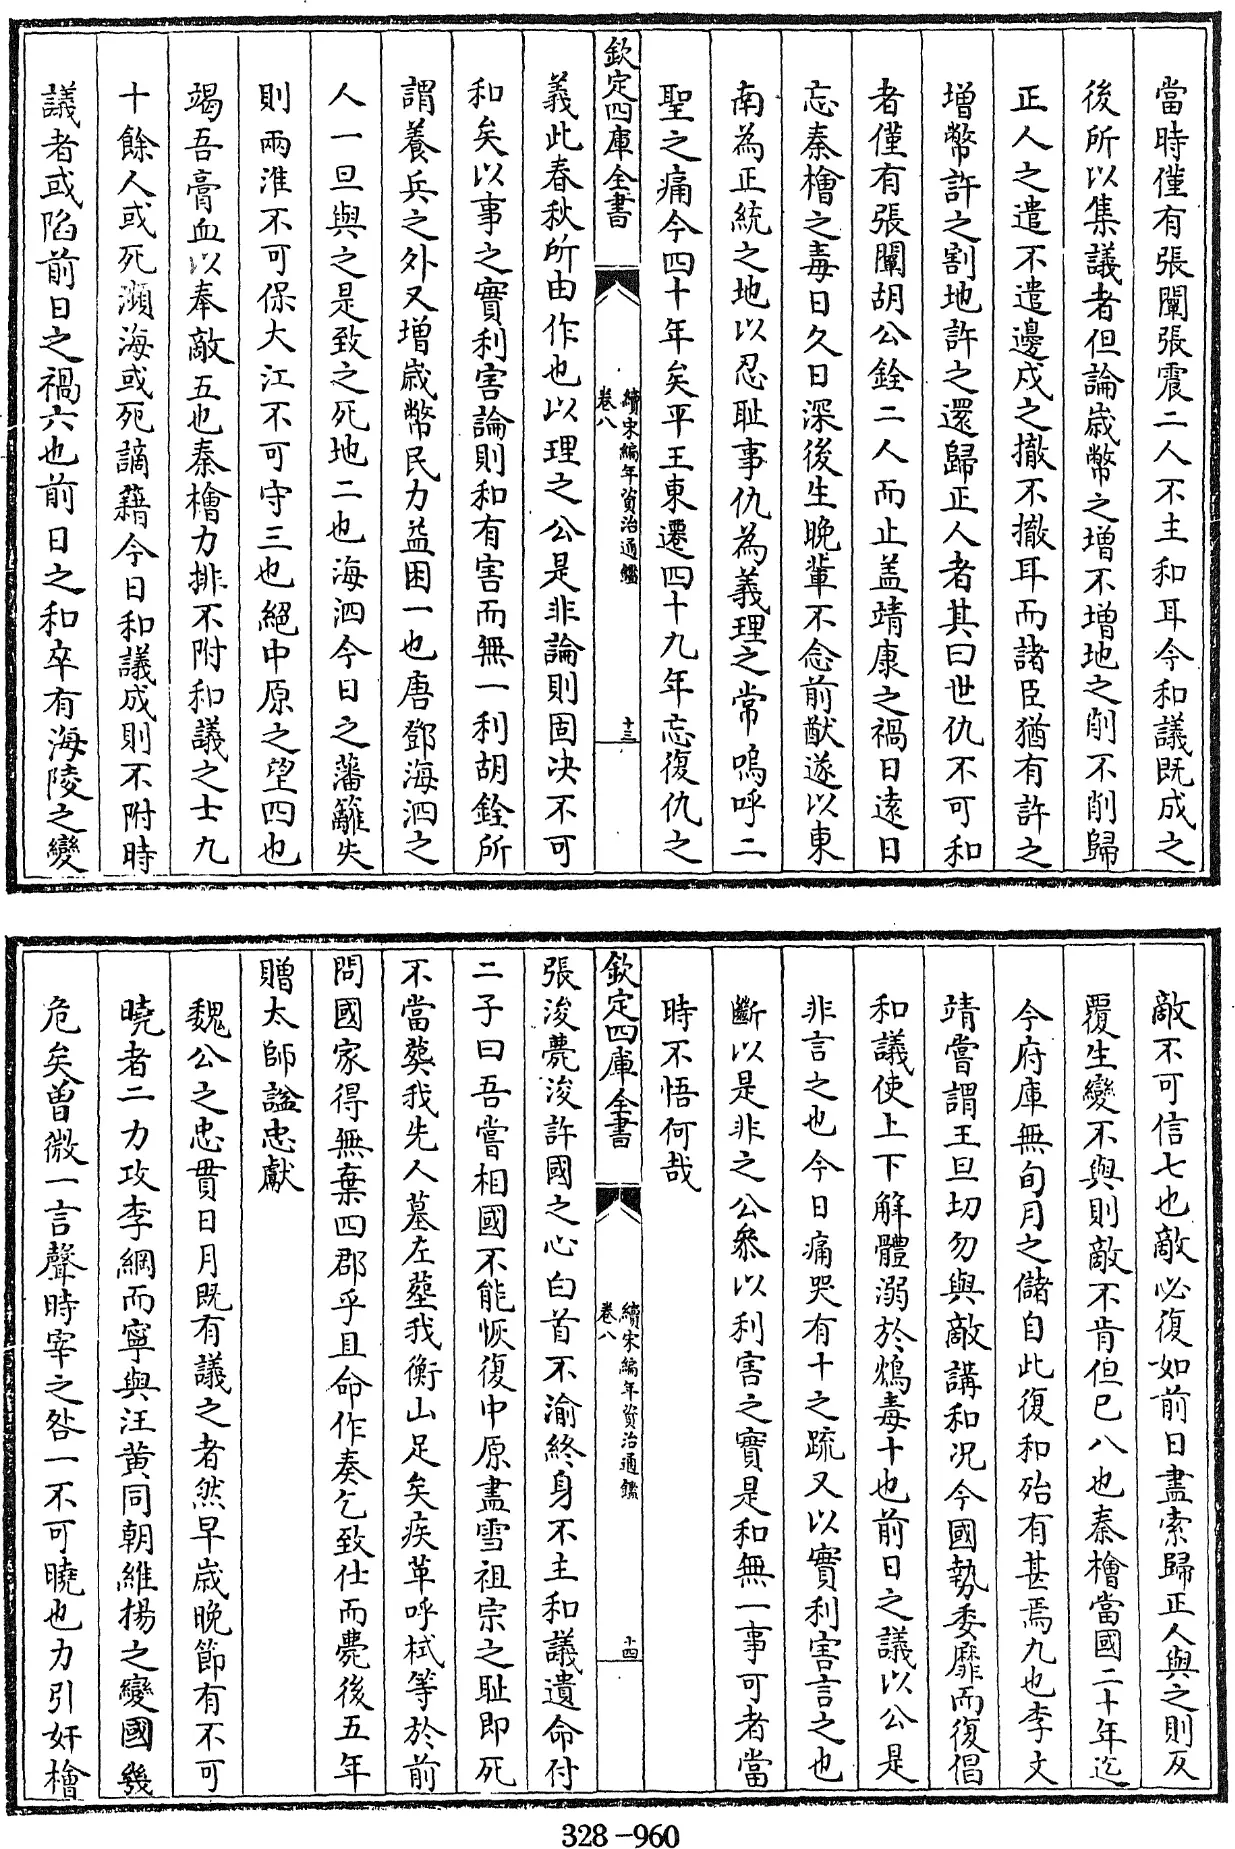 當時僅有張闡張震二人不主和耳今和議既成之
後所以集議者但論歳幣之增不增地之削不削歸
正人之遣不遣邊戍之撤不撤耳而諸臣猶有許之
增幣許之割地許之還歸正人者其曰世仇不可和
者僅有張闡胡公銓二人而止盖靖康之禍日遠日
忘秦檜之毒日久日深後生晩輩不念前猷遂以東
南為正統之地以忍耻事仇為義理之常嗚呼二
聖之痛今四十年矣平王東遷四十九年忘復仇之
欽定四庫全書
續宋編年資治通鑑
卷八
十三
義此春秋所由作也以理之公是非論則固決不可
和矣以事之實利害論則和有害而無一利胡銓所
謂養兵之外又增歳幣民力益困一也唐鄧海泗之
人一旦與之是致之死地二也海泗今日之藩籬失
則兩淮不可保大江不可守三也絕中原之望四也
竭吾膏血以奉敵五也秦檜力排不附和議之士九
十餘人或死瀕海或死謫藉今日和議成則不附時
議者或陷前日之禍六也前日之和卒有海陵之變
敵不可信七也敵必復如前日盡索歸正人與之則反
覆生變不與則敵不肯但已八也秦檜當國二十年迄
今府庫無旬月之儲自此復和殆有甚焉九也李文
靖嘗謂王旦切勿與敵講和况今國勢委靡而復倡
和議使上下解體溺於鴆毒十也前日之議以公是
非言之也今日痛哭有十之疏又以實利害言之也
斷以是非之公叅以利害之實是和無一事可者當
時不悟何哉
欽定四庫全書
續宋編年資治通鑑
卷八
十四
張浚薨浚許國之心白首不渝終身不主和議遺命付
二子曰吾嘗相國不能恢復中原盡雪祖宗之耻即死
不當葬我先人墓左塟我衡山足矣疾革呼栻等於前
問國家得無棄四郡乎且命作奏乞致仕而薨後五年
贈太師諡忠獻
魏公之忠貫日月既有議之者然早歳晩節有不可
曉者二力攻李綱而寧與汪黄同朝維揚之變國幾
危矣曽微一言聲時宰之咎一不可曉也力引奸檜
328-960